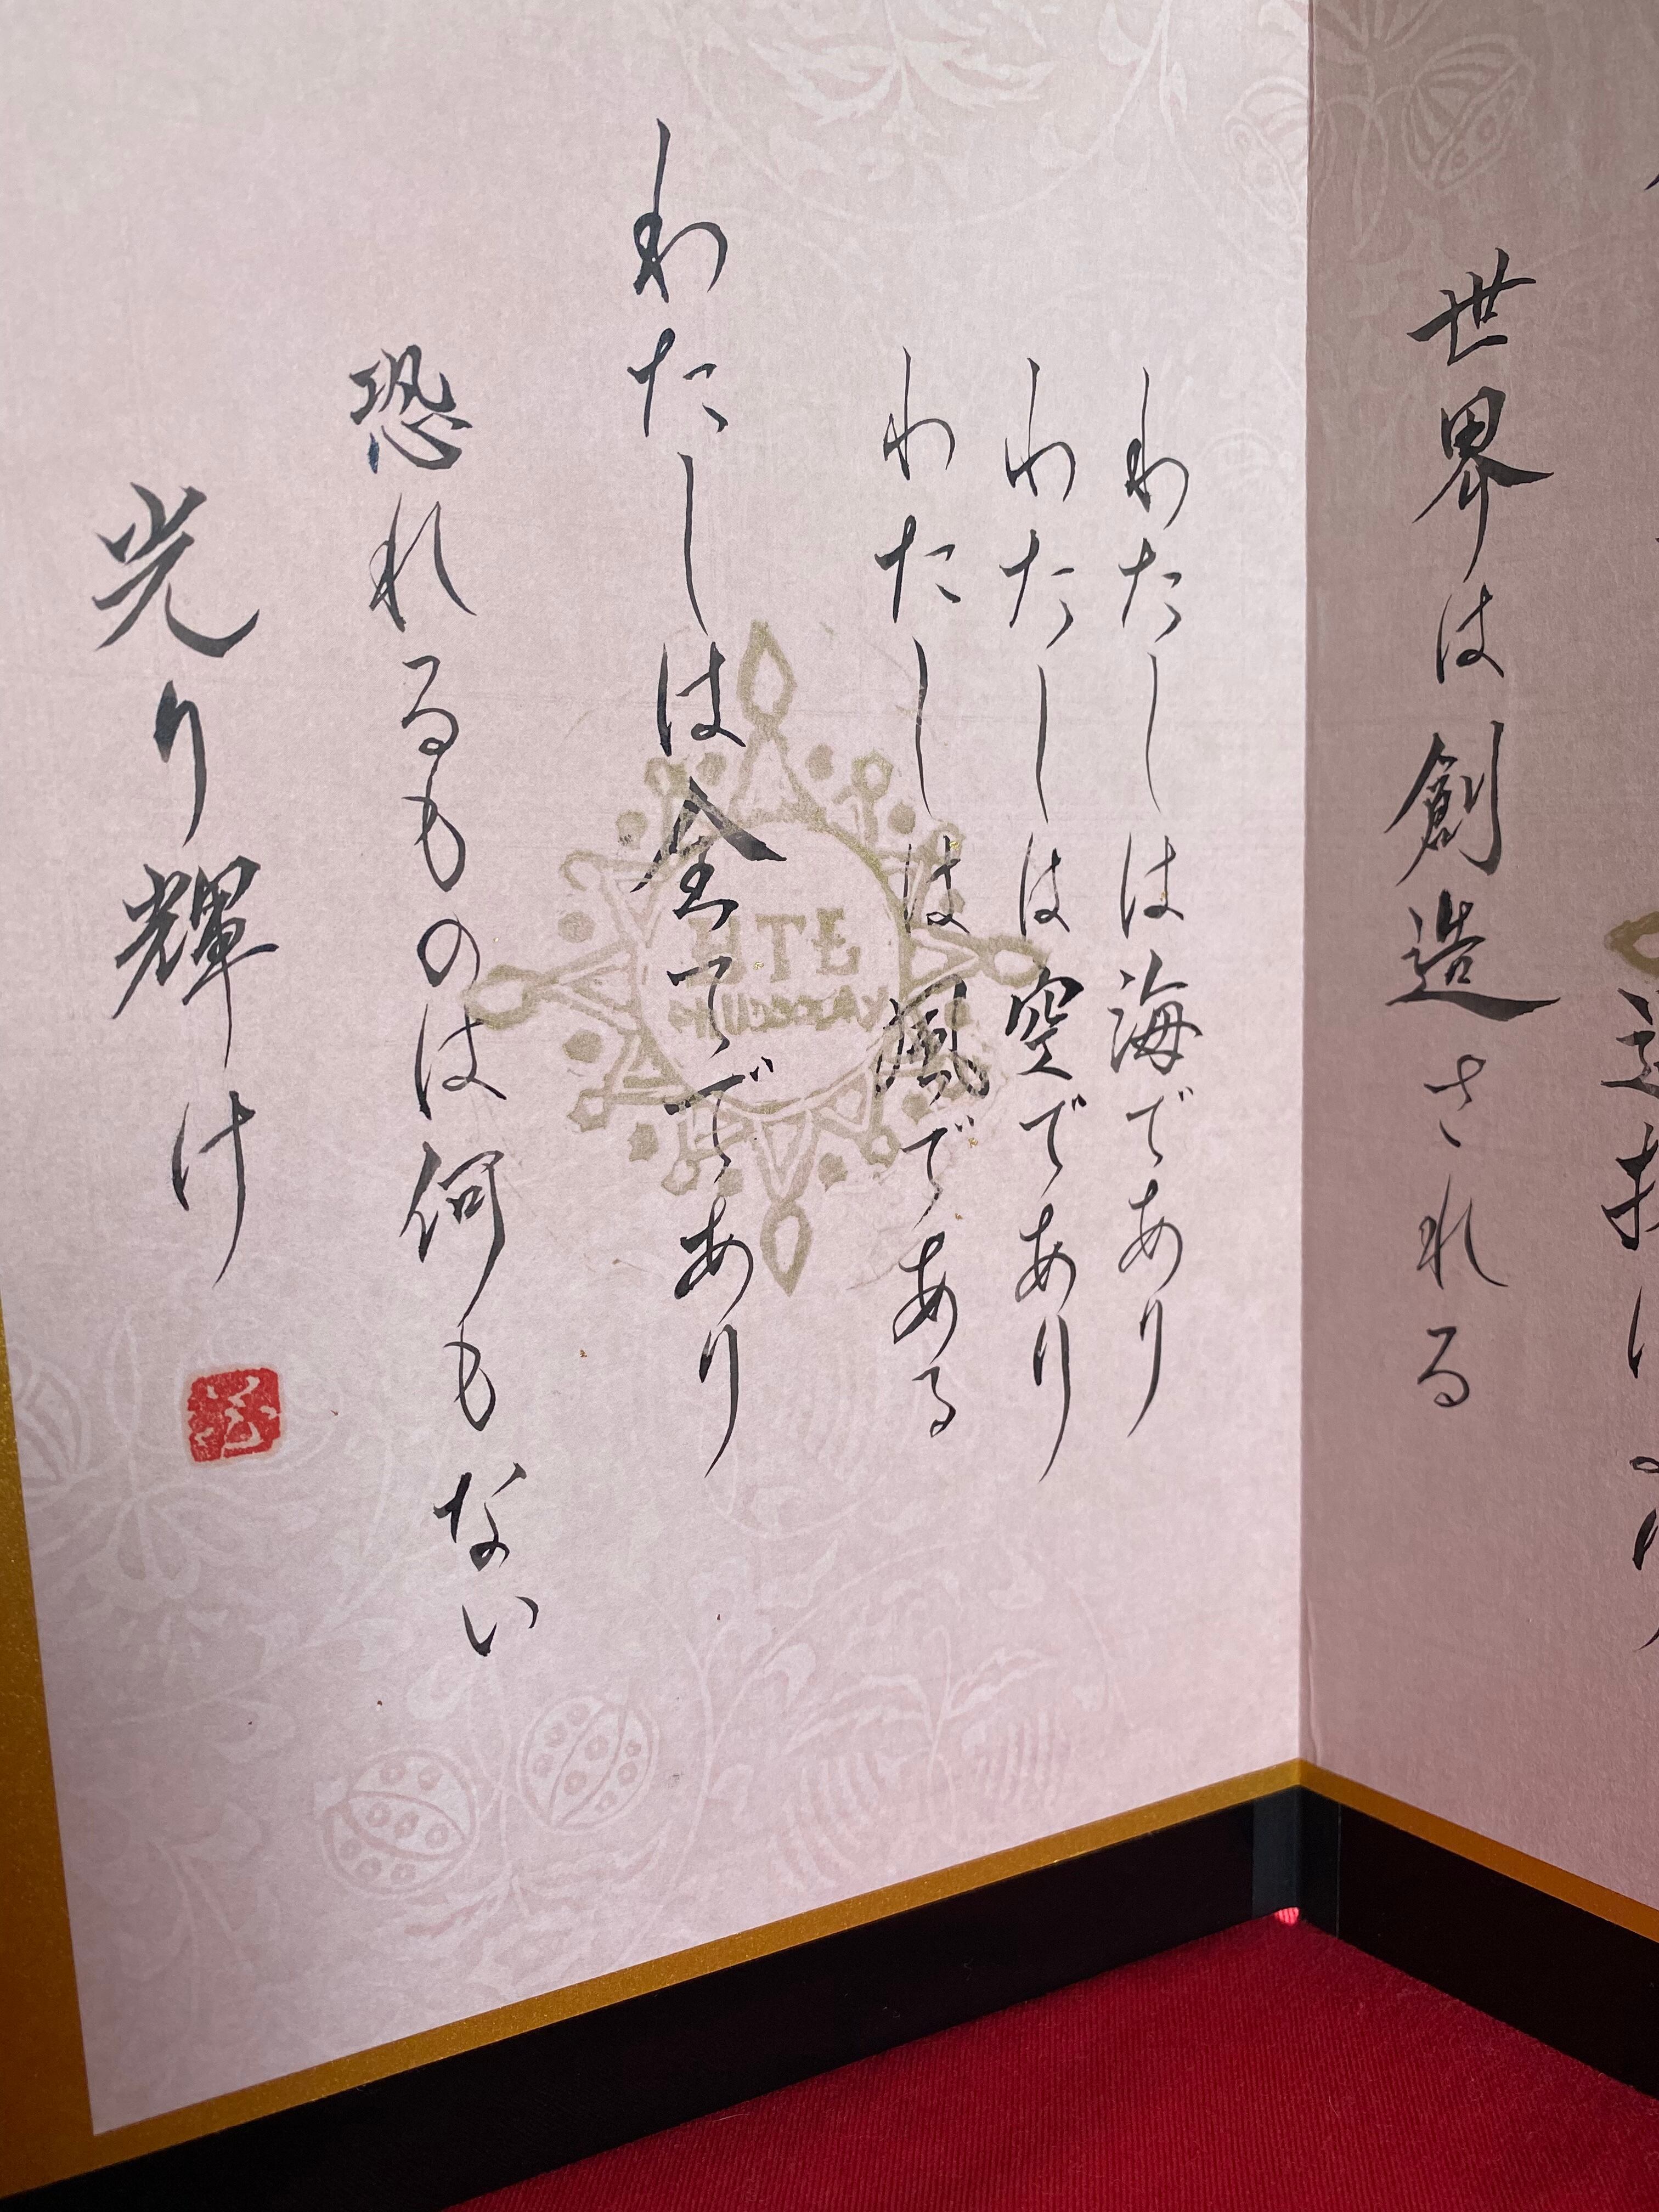 世界は創造される
わたしは海であり
わたしは空であり
わたしは風である
わたしは全てであり
恐れるものは何もない
光り輝け